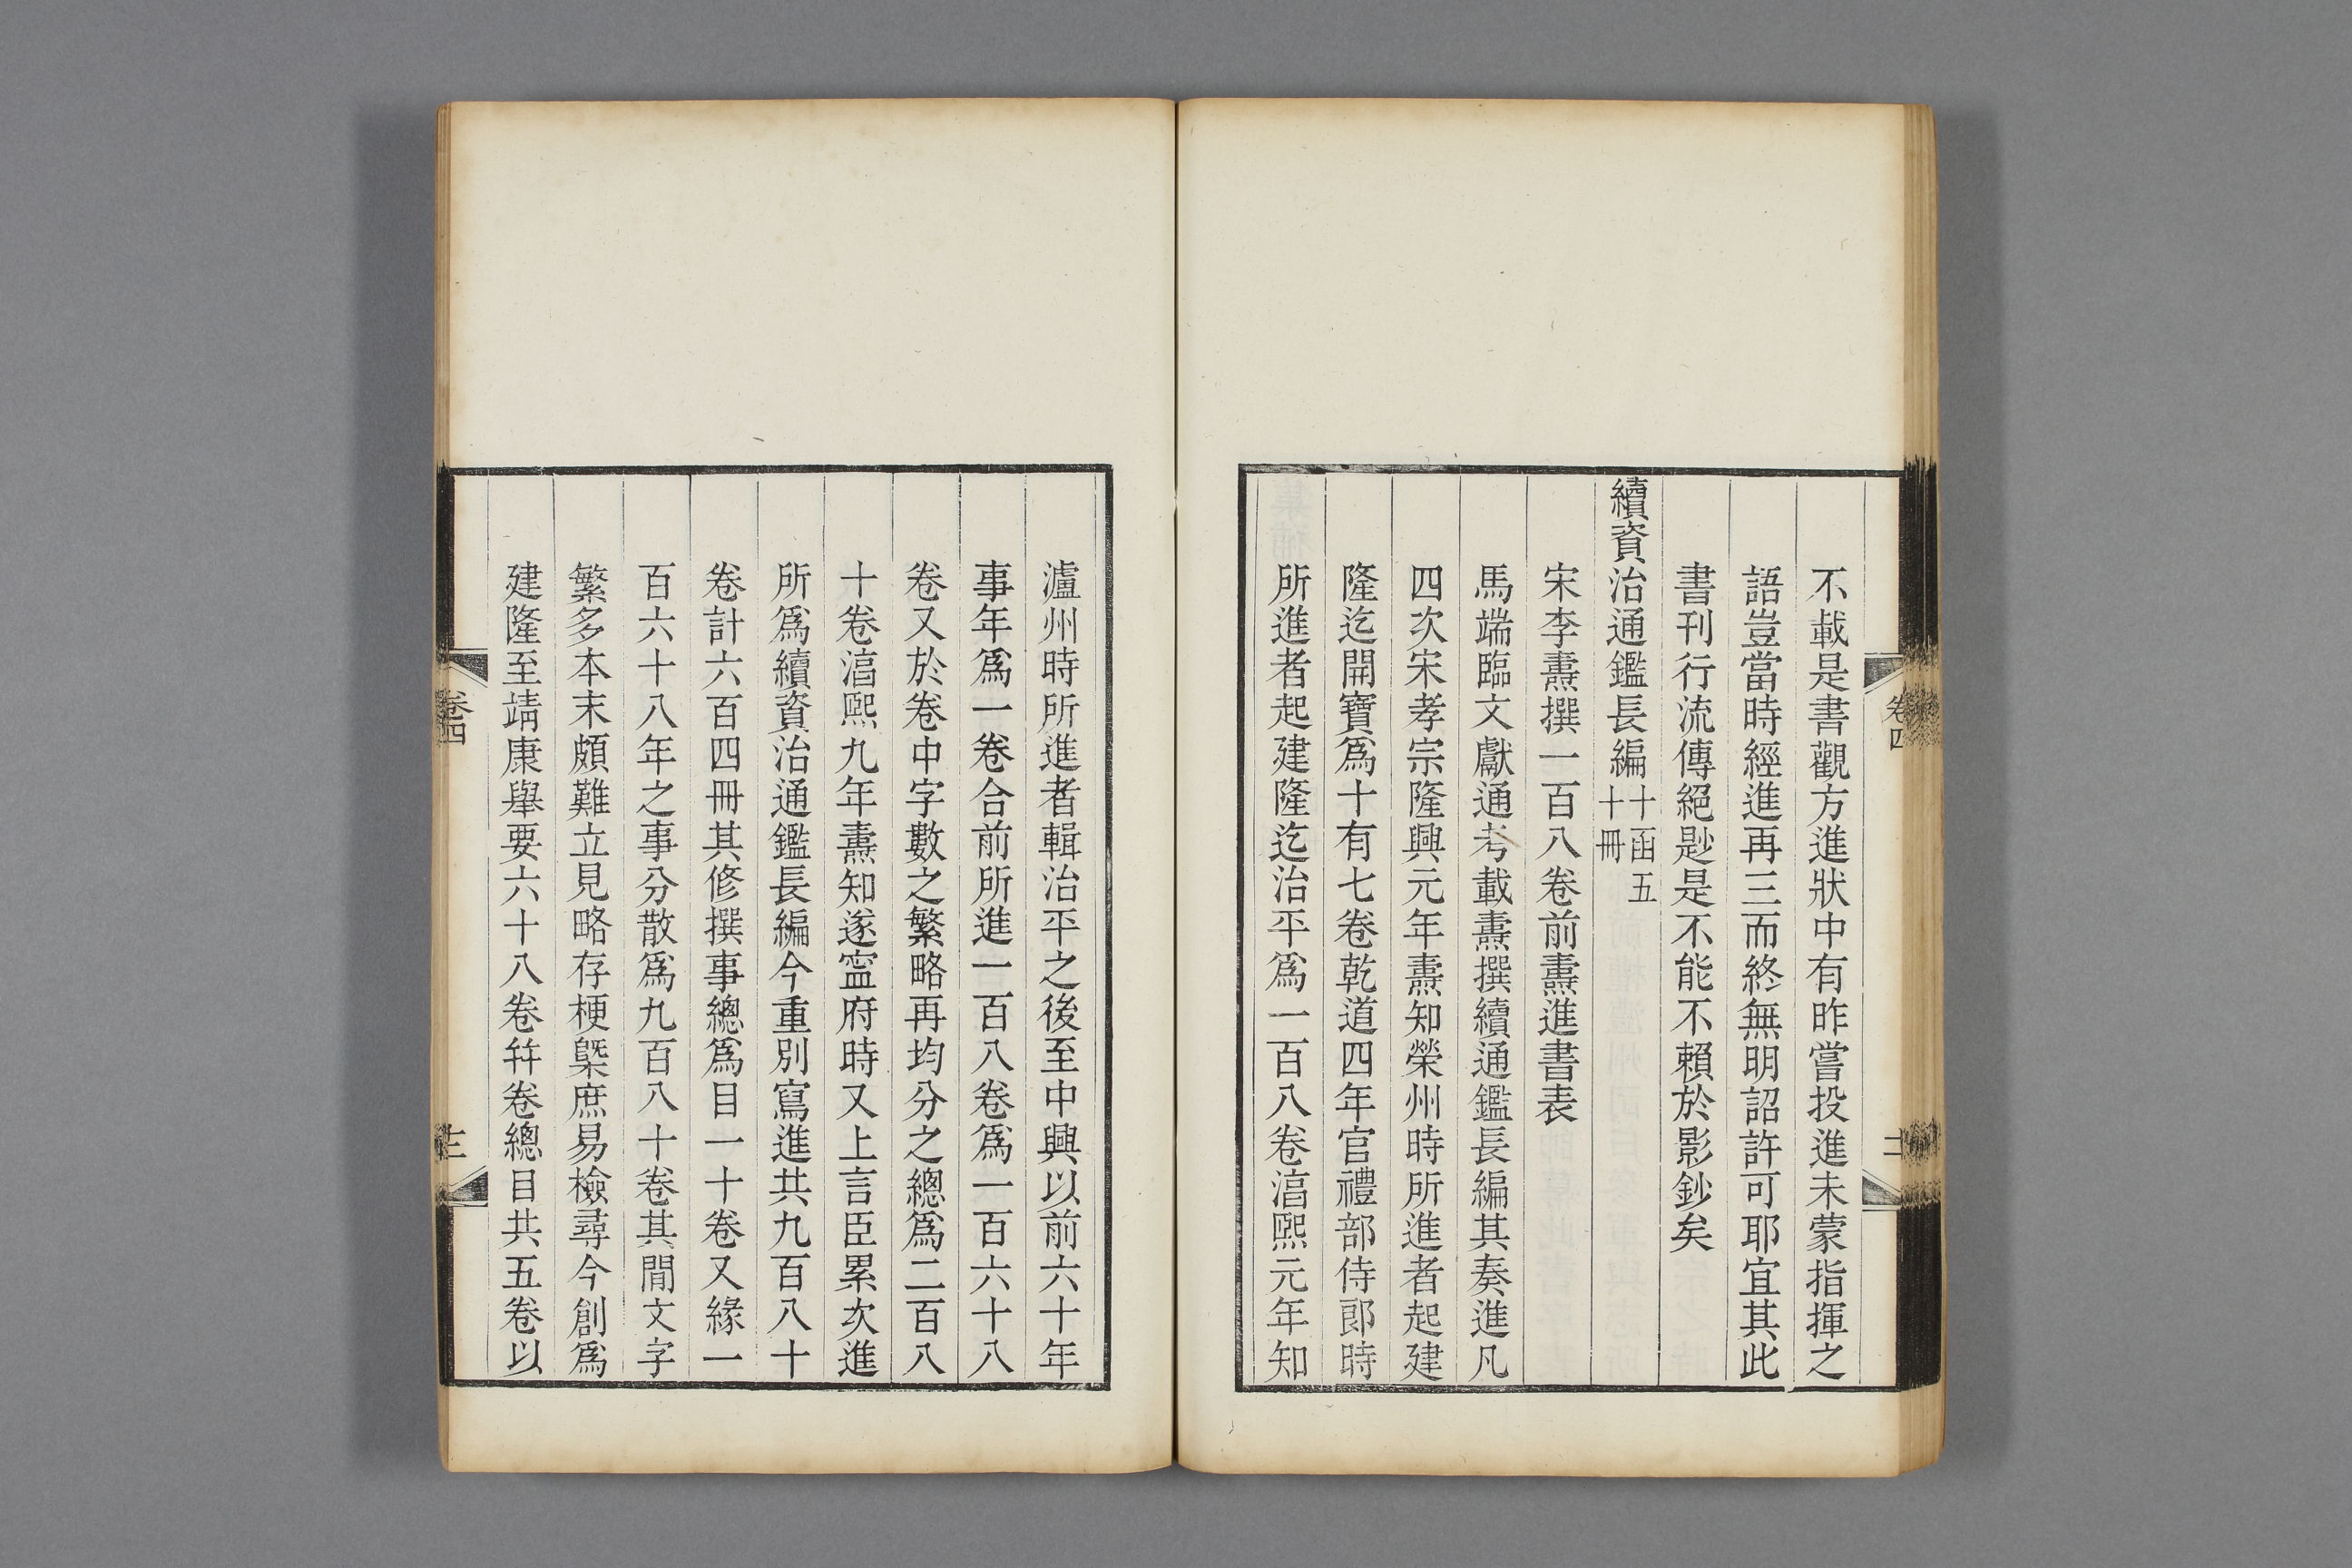 不載是書觀方進狀中有昨嘗投進未蒙指揮之
語豈當時經進再三而終無明詔許可耶宜其此
書刊行流傳絕尟是不能不賴於影鈔矣
續資治通鑑長編十函五十冊
宋李燾撰一百八卷前燾進書表
馬端臨文獻通考載燾撰續通鑑長編其奏進凡
四次宋孝宗隆興元年燾知榮州時所進者起建
隆迄開寶爲十有七卷乾道四年官禮部侍郎時
所進者起建隆迄治平爲一百八卷湻熙元年知
瀘州時所進者輯治平之後至中興以前六十年
事年爲一卷合前所進一百八卷爲一百六十八
卷又於卷中字數之繁略再均分之總爲二百八
十卷湻熙九年燾知遂寍府時又上言臣累次進
所爲續資治通鑑長編今重別寫進共九百八十
卷計六百四冊其修撰事總爲目一十卷又緣一
百六十八年之事分散爲九百八十卷其閒文字
繁多本末頗難立見略存梗槩庶易檢尋今創爲
建隆至靖康舉要六十八卷并卷總目共五卷以
卷四
卷四